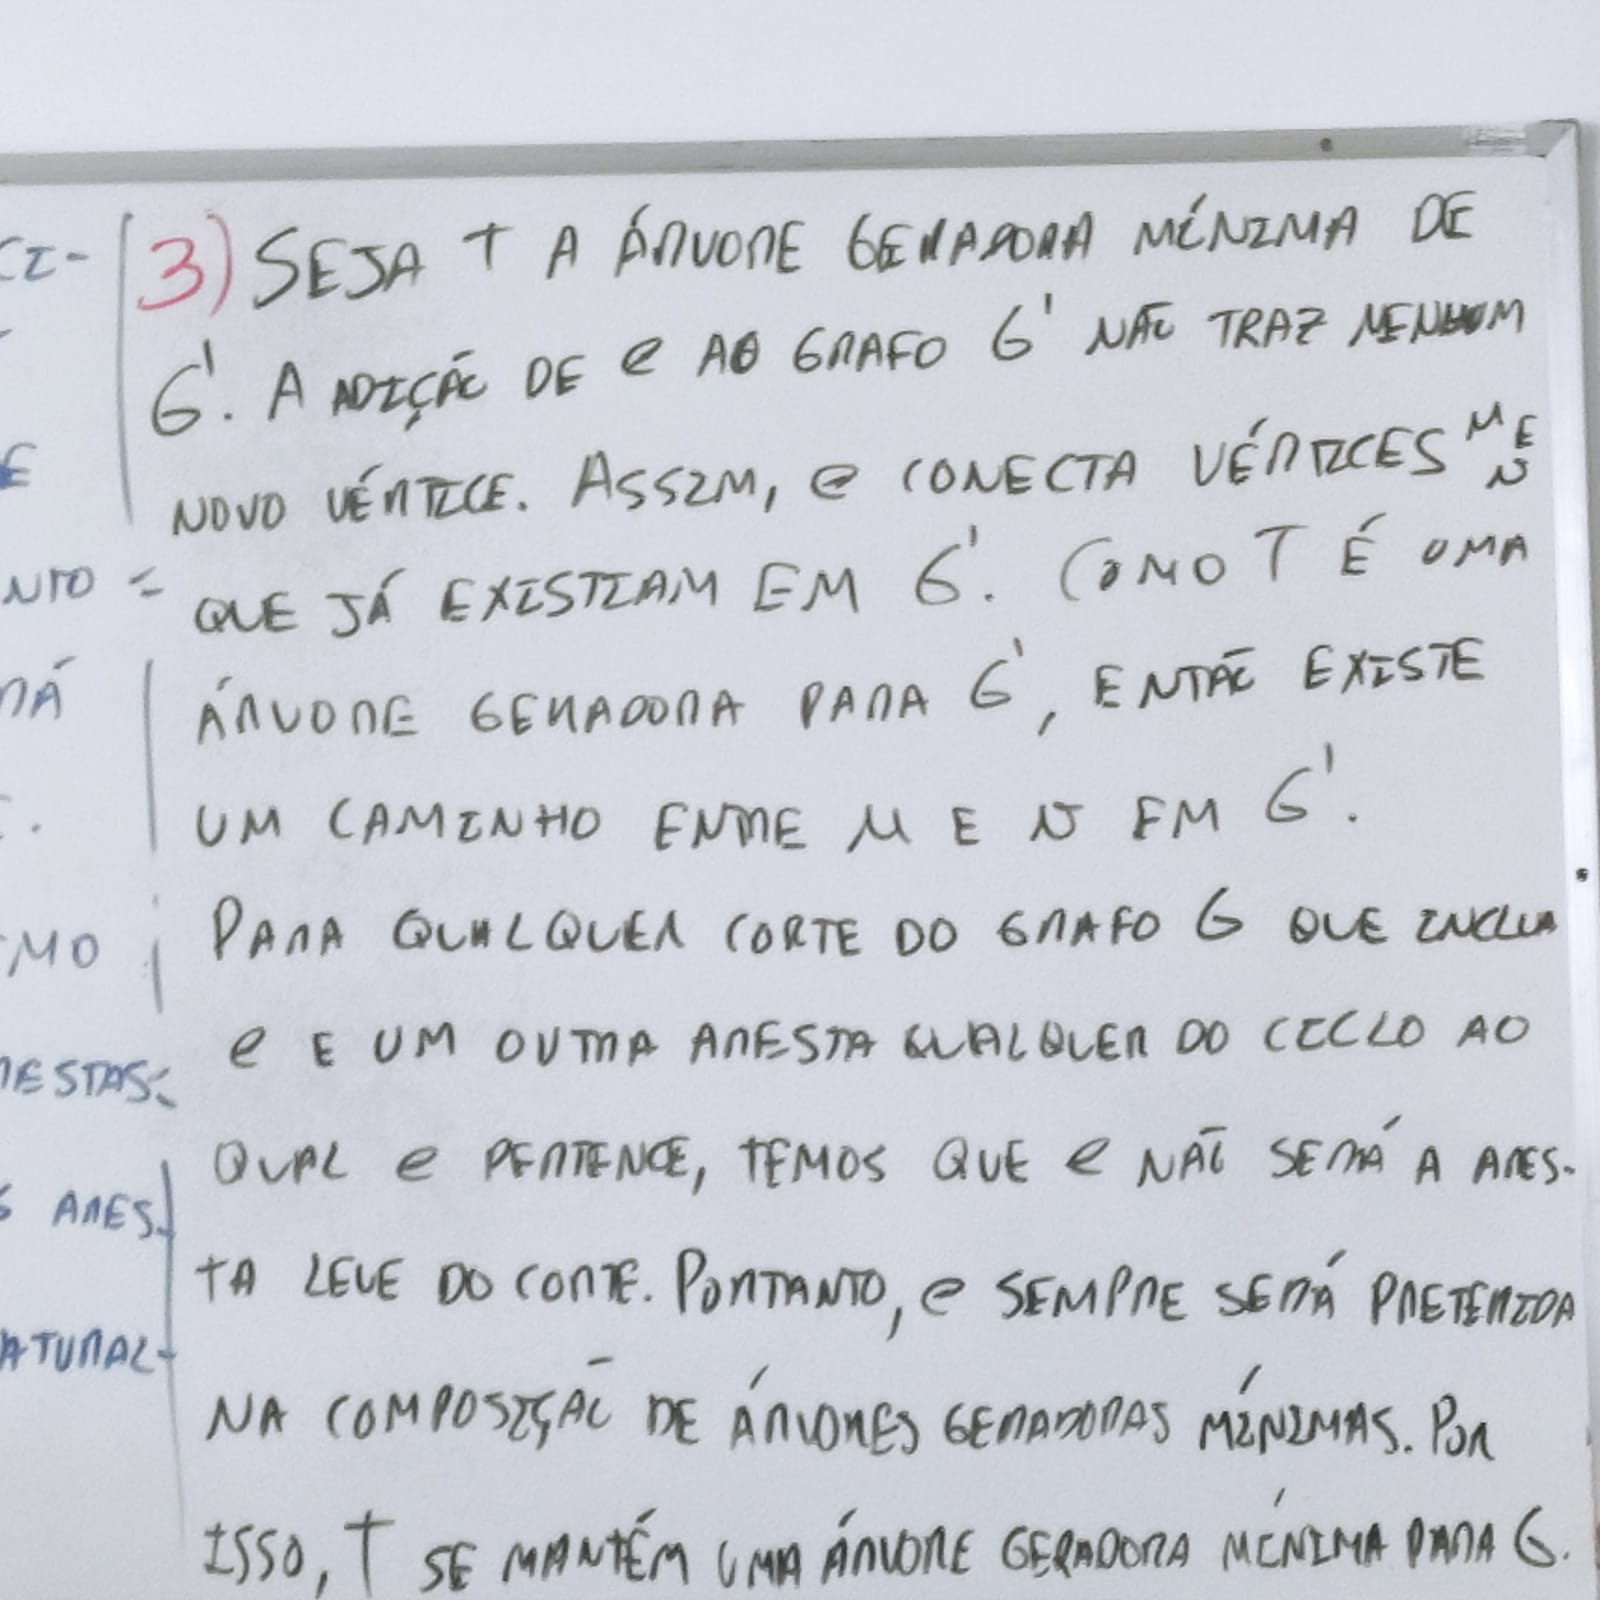 CI-
E
NTO =
RÁ
MO
RESTAS-
S ARES-
ATURAL-
3) SEJA T A ÁRVORE GERADORA MÍNIMA DE
G'. A ADIÇÃO DE e AO GRAFO G' NÃO TRAZ NENHUM
NOVO VÉRTICE. ASSIM, e CONECTA VÉRTICES u E v
QUE JÁ EXISTIAM EM G'. COMO T É UMA
ÁRVORE GERADORA PARA G', ENTÃO EXISTE
UM CAMINHO ENTRE u E v EM G'.
PARA QUALQUER CORTE DO GRAFO G QUE INCLUA
e E UM OUTRA ARESTA QUALQUER DO CICLO AO
QUAL e PERTENCE, TEMOS QUE e NÃO SERÁ A ARES-
TA LEVE DO CORTE. PORTANTO, e SEMPRE SERÁ PRETERIDA
NA COMPOSIÇÃO DE ÁRVORES GERADORAS MÍNIMAS. POR
ISSO, T SE MANTÉM UMA ÁRVORE GERADORA MÍNIMA PARA G.